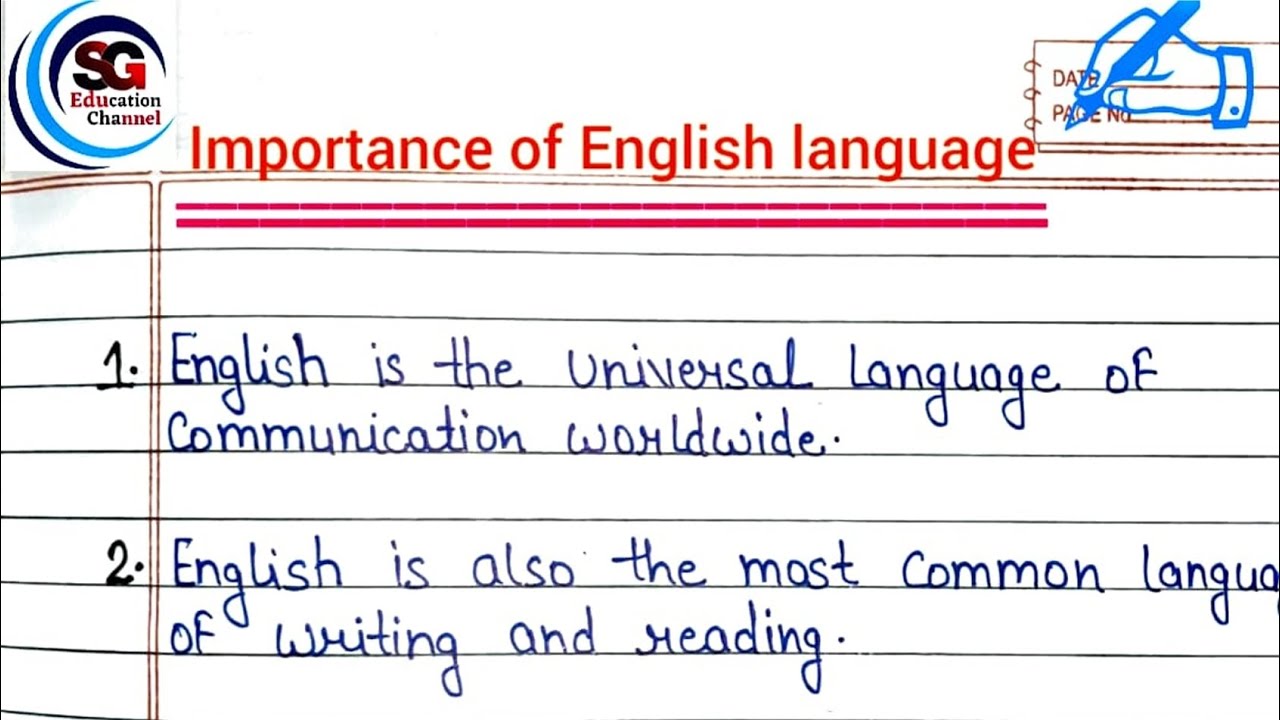 SG
Education
Channel
DATE
PAGE No
Importance of English language
1. English is the universal language of
Communication worldwide.
2. English is also the most common langua
of writing and reading.